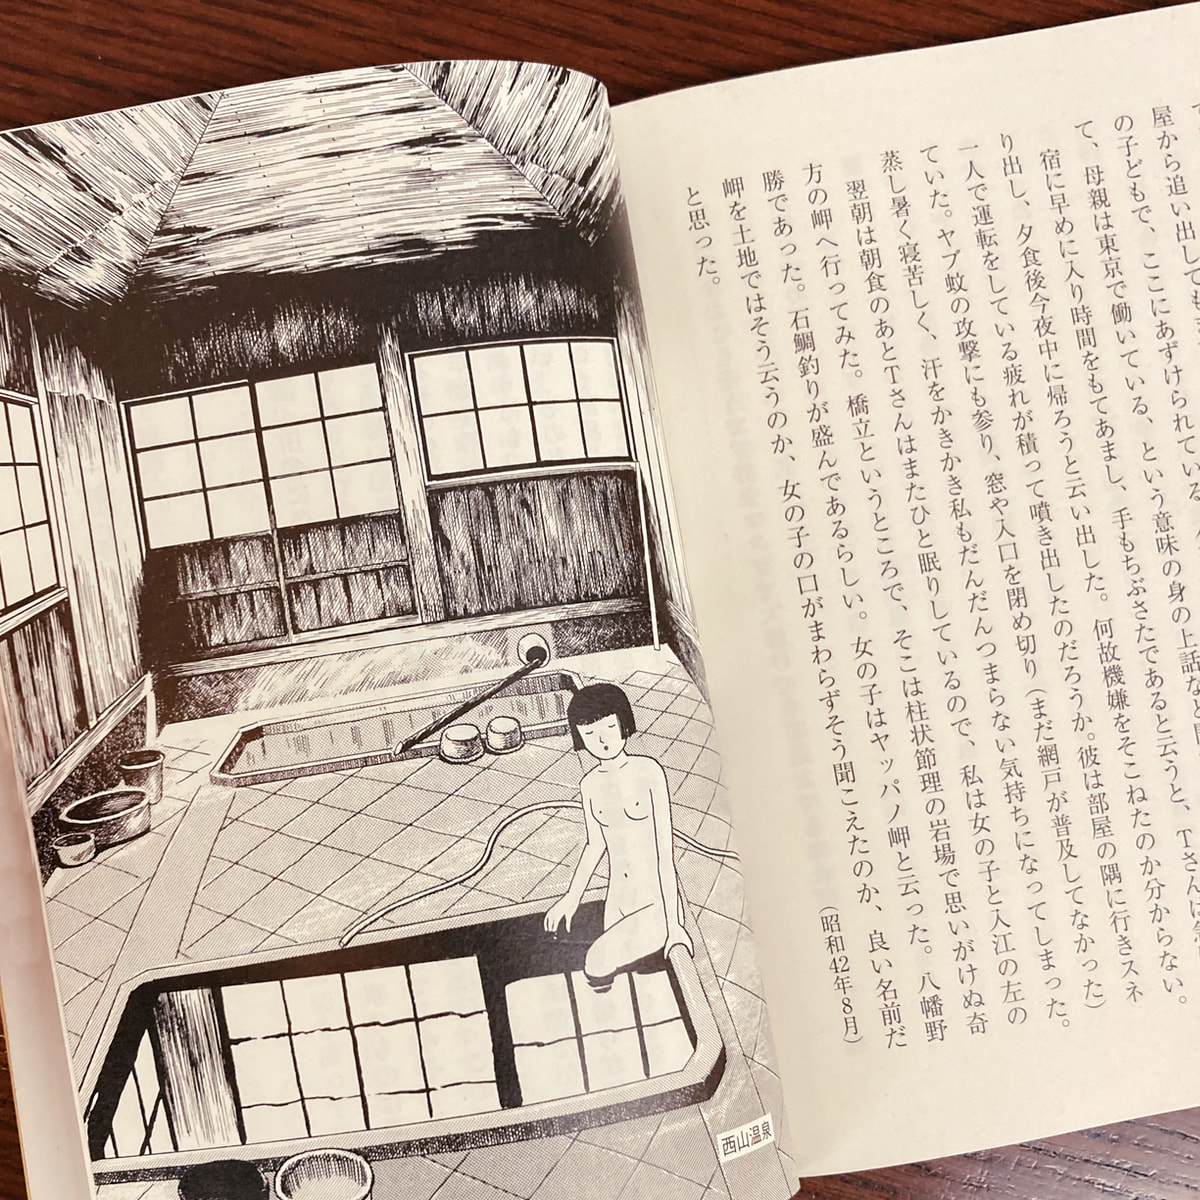 屋から追い出しても、
の子どもで、ここにあずけられている。
て、母親は東京で働いている、という意味の身の上話な
宿に早めに入り時間をもてあまし、手もちぶさたであると云うと、Tさんは
り出し、夕食後今夜中に帰ろうと云い出した。何故機嫌をそこねたのか分からない。
一人で運転をしている疲れが積って噴き出したのだろうか。彼は部屋の隅に行きスネ
ていた。ヤブ蚊の攻撃にも参り、窓や入口を閉め切り(まだ網戸が普及してなかった)
蒸し暑く寝苦しく、汗をかきかき私もだんだんつまらない気持ちになってしまった。
翌朝は朝食のあとTさんはまたひと眠りしているので、私は女の子と入江の左の
方の岬へ行ってみた。橋立というところで、そこは柱状節理の岩場で思いがけぬ奇
勝であった。石鯛釣りが盛んであるらしい。女の子はヤッパノ岬と云った。八幡野
岬を土地ではそう云うのか、女の子の口がまわらずそう聞こえたのか、良い名前だ
と思った。
(昭和42年8月)
西山温泉